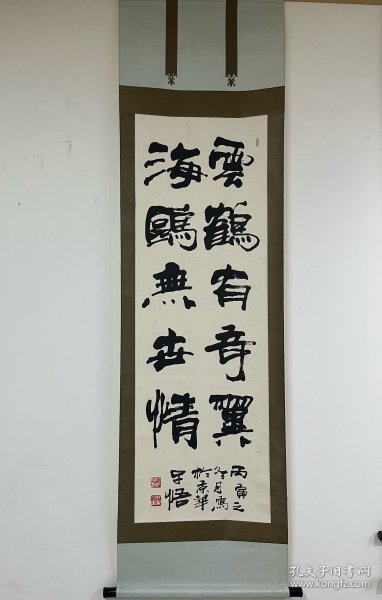 雲鶴有奇翼
海鷗無世情
丙寅之
冬月寫
於京華
子悟
孔夫子旧书网
www.kongfz.com